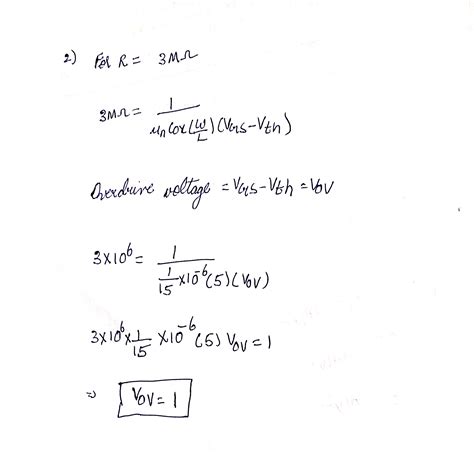 2) For R = 3MΩ
3MΩ = 1 / μnCox(W/L)(VGS-Vth)
Overdrive voltage = VGS-Vth = VOV
3×10⁶ = 1 / (1/15 ×10⁻⁶(5)(VOV))
3×10⁶× 1/15 ×10⁻⁶ (5) VOV = 1
⇒ VOV = 1